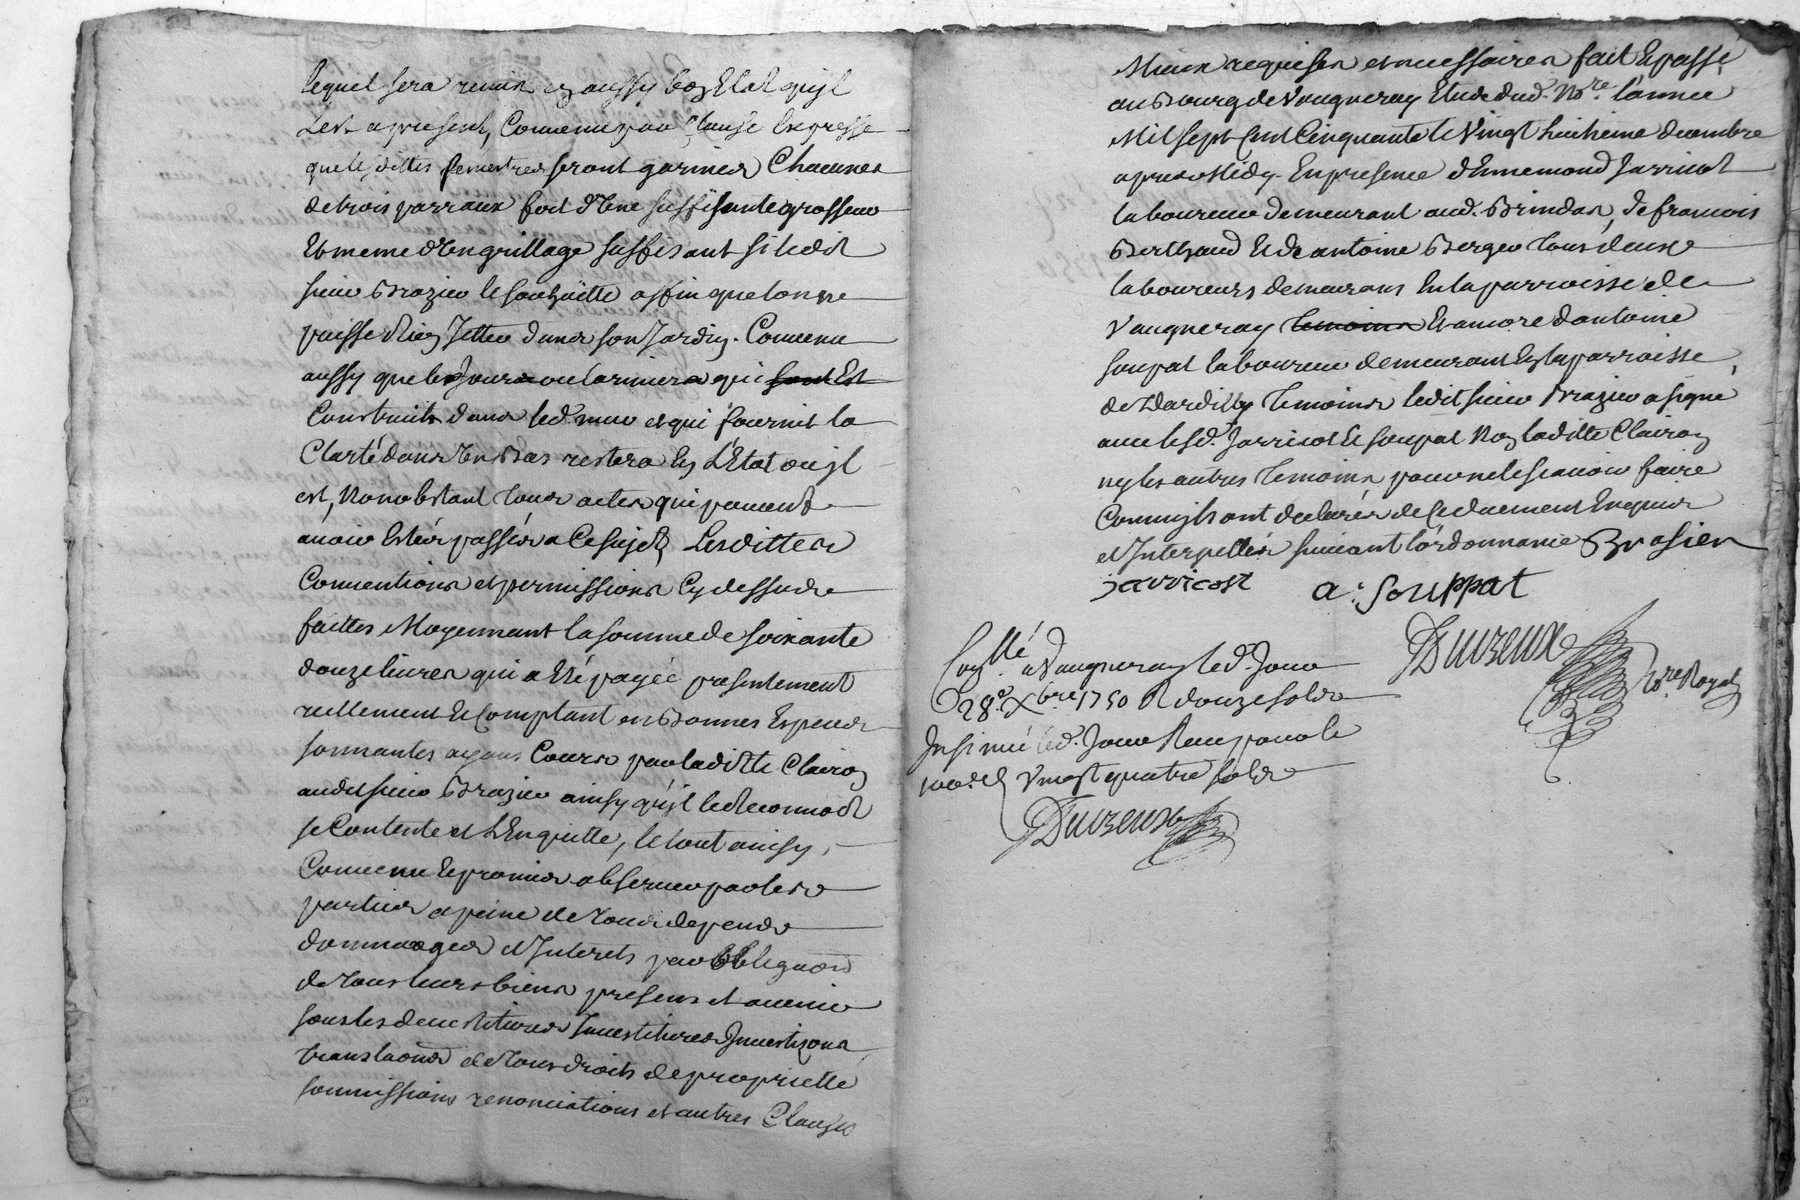 lequel sera remis en aussy bon Etat quyl
Est apresent, Convenu par Clause Expresse
que lesdittes fenestres seront garnies Chacunes
de trois parraux fort d'Une suffisante grosseur
Et meme d'Un grillage suffisant si ledit
sieur Brazier le souhaitte affin que lon ne
puisse Rien Jetter dans son Jardin. Convenu
aussy que les Jours ou larmiers qui sont Est
Construits dans led. mur et qui fournit la
Clarté dans Un Bas restera En L'Etat ou yl
est, Nonobstant tous actes qui peuvent
avoir Estés passés a Ce sujet, Lesdittes
Conventions et permissions Cy dessus
faittes Moyennant la somme de soixante
douze livres qui a Eté payée presentement
reellement et Comptant en Bonnes Especes
sonnantes ayans Cours par laditte Clairon
audit sieur Brazier ainsy quyl le Reconnoit
se Contente et L'En quitte, le tout ainsy
Convenu et promis observer par les
parties a peine de tous depends
dommages et Interets par obligaõn
de tous leurs biens presens et avenir
sous les devestitures Investitures
translaõns de tous droits de proprietté
soumissions renonciations et autres Clauses
Mieux requises et necessaires fait Et passé
au Bourg de Vaugneray Etude dud. No.re l'année
Mil sept Cent Cinquante le Vingt huitieme decembre
apres Midy. En presence d'Ennemond Jarricot
laboureur demeurant aud. Brindas, de francois
Berthaud Et de antoine Berger tous deux
laboureurs demeurans En la parroisse de
Vaugneray temoins Et ancore d antoine
soupat laboureur demeurant En la parroisse
de Dardilly temoins ledit sieur Brazier a signé
avec lesd. Jarricot Et soupat Non laditte Clairon
ny les autres temoins pour ne le scavoir faire
Comm'yls ont declarés de Ce duement Enquis
et Interpellés suivant l'ordonnance Brasier
jarricost a. Souppat
Duvzeux No.re Royal
Con.llé a Vaugneray led. Jour
28.e Xbre 1750 R douze sols
Insinué led. Jour Reçu pour le
Vingt quatre sols
Duvzeux